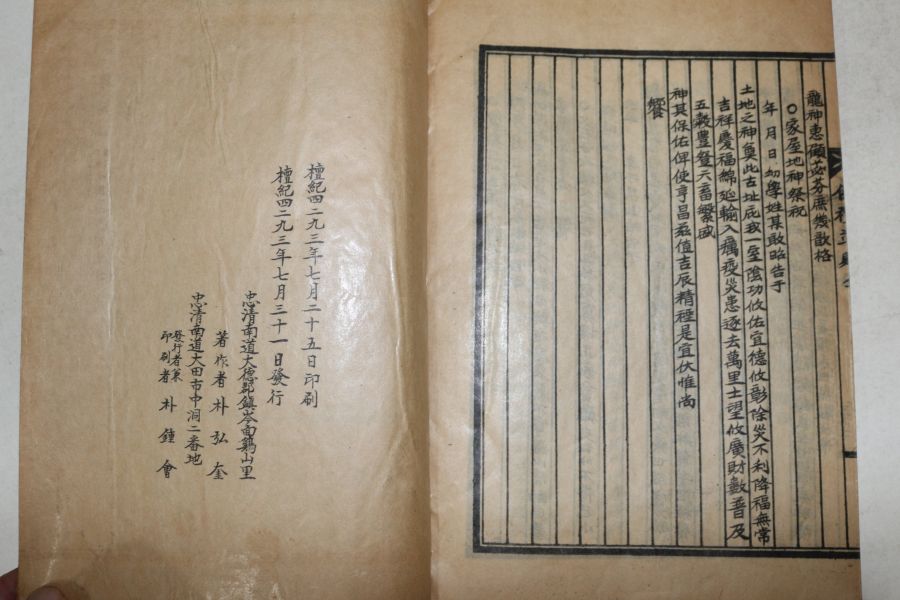 龍神惠顧苾芬庶幾歆格
○家屋地神祭祝
年 月 日 幼學姓某敢昭告于
土地之神奠此古址庇我一室陰功攸佑宜德攸彰除災不利降福無常
吉祥慶福綿延輸入癘疫災患逐去萬里士望攸廣財數普及
五穀豊登六畜繁盛
神其保佑俾使亨昌玆值吉辰精禋是宜伏惟尚
饗
檀紀四二九三年七月二十五日印刷
檀紀四二九三年七月三十一日發行
忠清南道大德郡鎮岑面鷄山里
著作者 朴弘奎
忠清南道大田市中洞二番地
發行者兼印刷者 朴鍾會